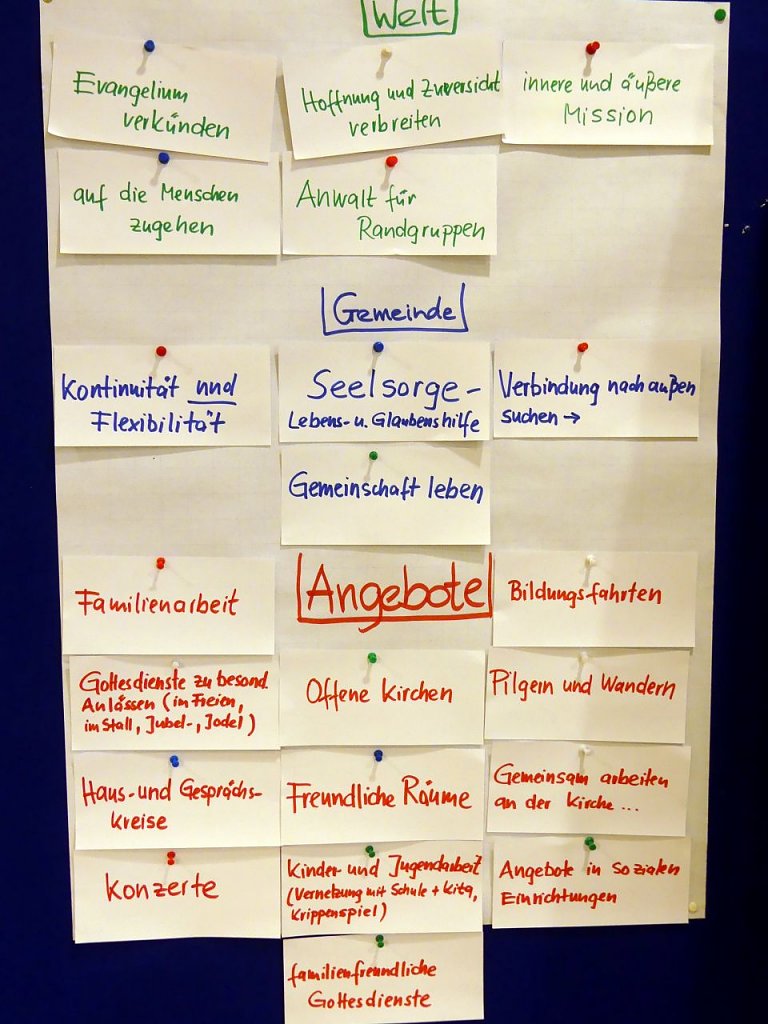 Welt
Evangelium
verkünden
Hoffnung und Zuversicht
verbreiten
innere und äußere
Mission
auf die Menschen
zugehen
Anwalt für
Randgruppen
Gemeinde
Kontinuität und
Flexibilität
Seelsorge-
Lebens- u. Glaubenshilfe
Verbindung nach außen
suchen →
Gemeinschaft leben
Angebote
Familienarbeit
Bildungsfahrten
Gottesdienste zu besond.
Anlässen (im Freien,
im Stall, Jubel-, Jodel)
Offene Kirchen
Pilgern und Wandern
Haus- und Gesprächs-
kreise
Freundliche Räume
Gemeinsam arbeiten
an der Kirche...
Konzerte
Kinder- und Jugendarbeit
(Vernetzung mit Schule + Kita,
Krippenspiel)
Angebote in Sozialen
Einrichtungen
familienfreundliche
Gottesdienste